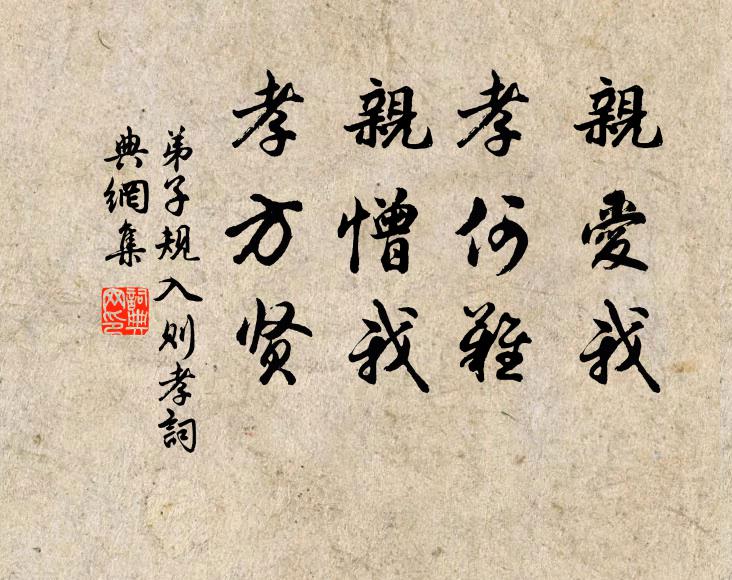 親愛我
孝何難
親憎我
孝方贤
弟子規入則孝詞
典網集
詞典
网印